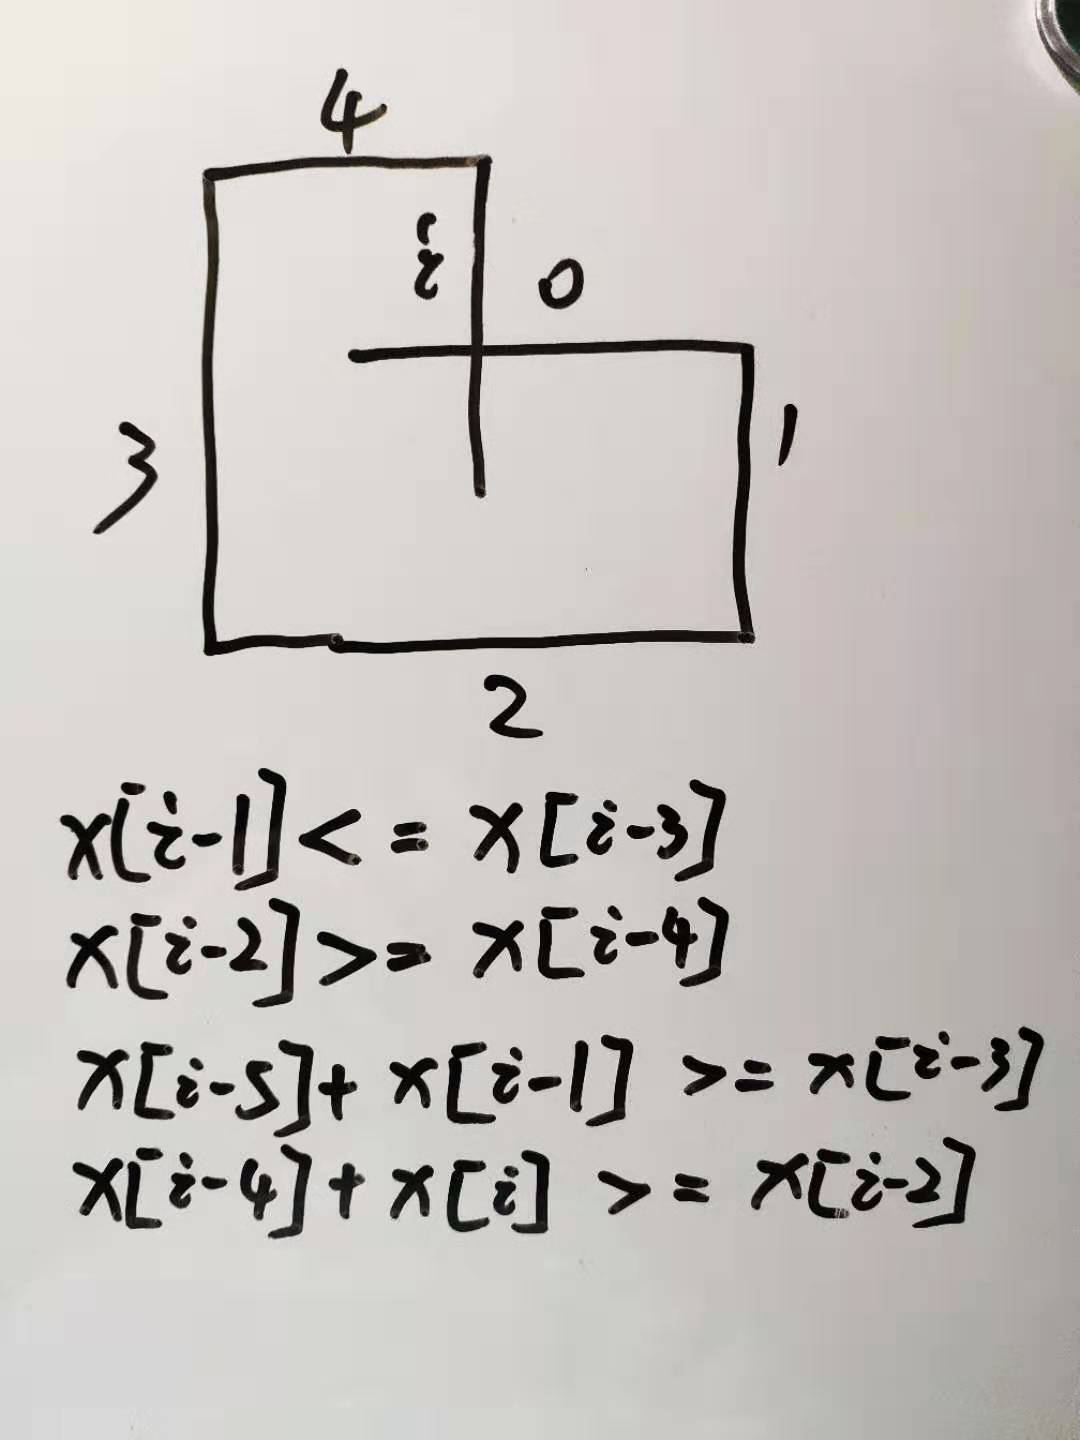 4
i 0
3 1
2
x[i-1] <= x[i-3]
x[i-2] >= x[i-4]
x[i-5]+ x[i-1] >= x[i-3]
x[i-4]+ x[i] >= x[i-2]